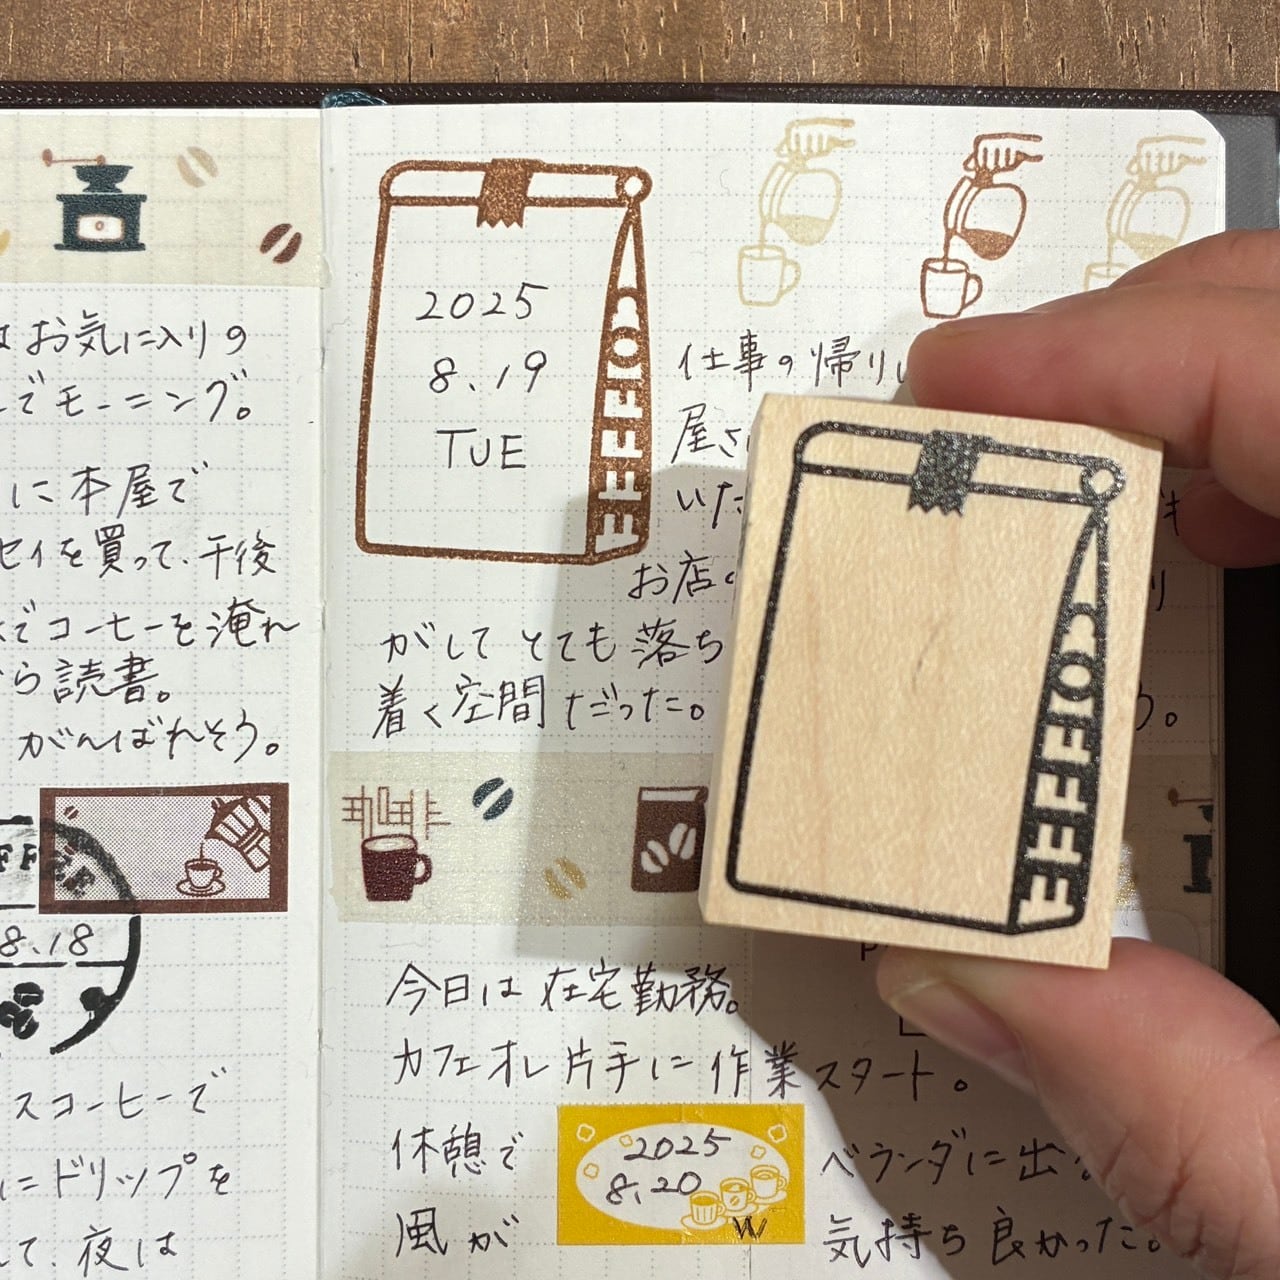 はお気に入りの
でモーニング。
に本屋で
セイを買って、午後
でコーヒーを淹れ
ら読書。
がんばれそう。
8.18
スコーヒーで
にドリップを
て、夜は
2025
8.19
TUE
COFFEE
仕事の帰り
屋さ
いた
お店の
がしてとても落ち
着く空間だった。
COFFEE
今日は在宅勤務。
カフェオレ片手に作業スタート。
休憩で ベランダに出
2025
8.20
W
風が 気持ち良かった。